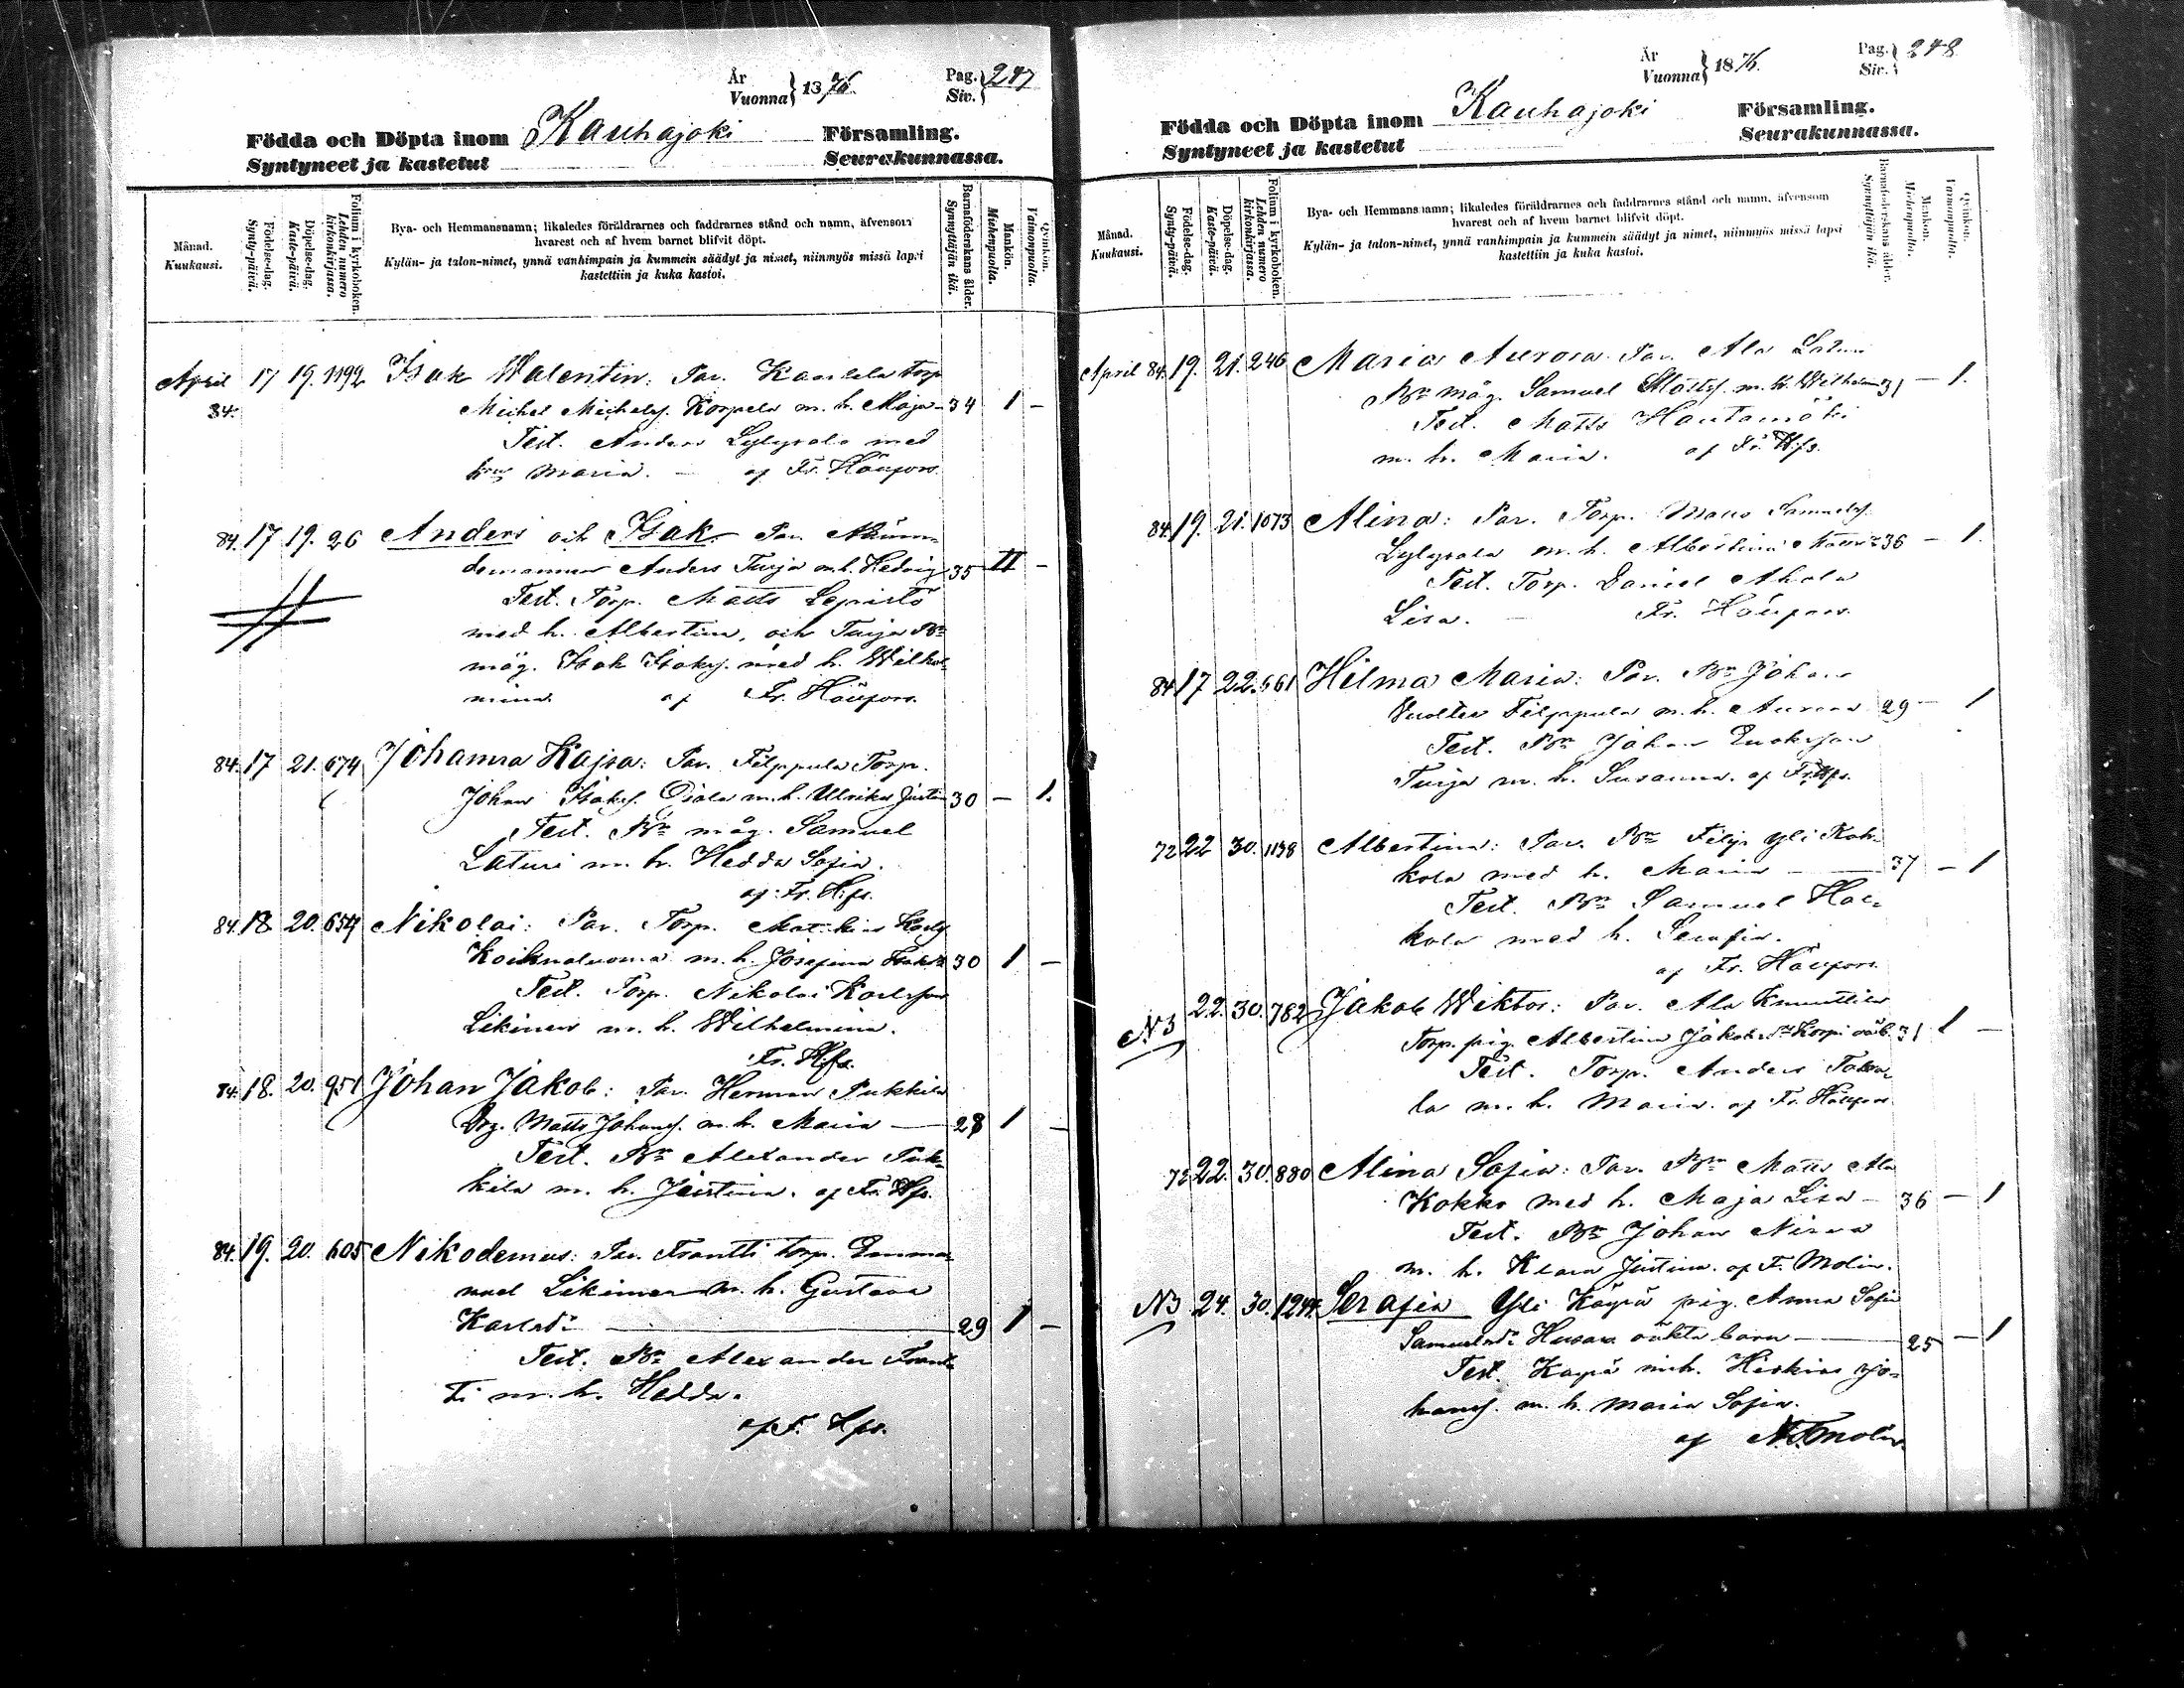 År
Vuonna } 1876.
Pag.
Siv. } 247
Födda och Döpta inom Kauhajoki Församling.
Syntyneet ja kastetut Seurakunnassa.
Månad.
Kuukausi.
Födelse-dag.
Synty-päivä.
Döpelse-dag.
Kaste-päivä.
Folium i kyrkoboken.
Lehden numero
kirkonkirjassa.
Bya- och Hemmansnamn; likaledes föräldrarnes och faddrarnes stånd och namn, äfvensom
hvarest och af hvem barnet blifvit döpt.
Kylän- ja talon-nimet, ynnä vanhimpain ja kummein säädyt ja nimet, niinmyös missä lapsi
kastettiin ja kuka kastoi.
Barnaföderskans ålder.
Synnyttäjän ikä.
Mankön.
Miehenpuolta.
Qvinkön.
Vaimonpuolta.
April 17 19. 1192 Isak Walentin: Par. torp
84. Michel Michels. Korpela m. h. Maja 34 1 –
Test. Anders Lylyvala med
hru Maria. – af Fr. Häufors.
84. 17 19. 26 Anders och Isak. Par. Nämn-
demannen Anders Turja m. h. Hedvig 35 II –
Test. Torp. Matts Lepistö
med h. Albertina, och Turja Bn
måg. Isak Isaks. med h. Wilhel-
mina. af Fr. Häufors.
84. 17 21. 674 Johanna Kajsa: Par. Filppula Torp.
Johan Isaks. Ojala m. h. Ulrika Justina 30 – 1.
Test. Bn måg. Samuel
Laturi m. h. Hedda Sofia.
af Fr. Hfs.
84. 18 20. 659 Nikolai: Par. Torp.
Koihnaluoma m. h. Josefina 30 1 –
Test. Torp. Nikolai Karlsson
Likinen m. h. Wilhelmina.
Fr. Hfs.
84. 18. 20. 951 Johan Jakob: Par. Herman Pukkila
Matts Johans. m. h. Maria – 28 1 –
Test. Bn Alexander Puk-
kila m. h. Justina. af Fr. Hfs.
84. 19. 20. 605 Nikodemus: Par. Frantti torp. Emma-
nuel Likinen m. h. Gustava
Karlsdr – 29 1 –
Test. Bn Alexander Frant-
ti m. h. Hedda.
af F. Hfs.
År
Vuonna } 1876.
Pag.
Siv. } 248
Födda och Döpta inom Kauhajoki Församling.
Syntyneet ja kastetut Seurakunnassa.
Månad.
Kuukausi.
Födelse-dag.
Synty-päivä.
Döpelse-dag.
Kaste-päivä.
Folium i kyrkoboken.
Lehden numero
kirkonkirjassa.
Bya- och Hemmansnamn; likaledes föräldrarnes och faddrarnes stånd och namn, äfvensom
hvarest och af hvem barnet blifvit döpt.
Kylän- ja talon-nimet, ynnä vanhimpain ja kummein säädyt ja nimet, niinmyös missä lapsi
kastettiin ja kuka kastoi.
Barnaföderskans ålder.
Synnyttäjän ikä.
Mankön.
Miehenpuolta.
Qvinkön.
Vaimonpuolta.
April 84. 19. 21. 246 Maria Aurora. Par. Ala Laturi
Bn måg. Samuel Matts. m. h. Wilhelmina 31 – 1.
Test. Matts Hautamäki
m. h. Maria. af Fr. Hfs.
84. 19. 21. 1073 Alina: Par. Torp. Matts Samuels.
Lylyvala m. h. Albertina 36 – 1.
Test. Torp. Daniel Ahola
Lisa. – Fr. Häufors.
84 17 22. 661 Hilma Maria: Par. Bn Johan
Filppula m. h. Aurora 29 – 1
Test. Bn Johan
Turja m. h. Susanna. af Fr. Hfs.
72 22 30. 1138 Albertina: Par. Bn Filip Yli Kok-
kola med h. Maria – 37 – 1
Test. Bn Samuel
kola med h. Serafia.
af Fr. Häufors.
N3 22. 30. 782 Jakob Wiktor: Par. Ala Knuuttila
Torp. pig. Albertina Korpi oäkt. 31 1 –
Test. Torp. Anders
la m. h. Maria. af Fr. Häufors.
72 22. 30. 880 Alina Sofia: Par. Bn Matts Ala
Kokko med h. Maja Lisa – 36 – 1
Test. Bn Johan
m. h. Klara Justina. af F. Molin.
N3 24. 30. 1244 Serafia Yli Käyrä pig. Anna Sofia
Samuelsdr oäkta barn – 25 – 1
Test. Käyrä inh. Hiskias Jo-
hans. m. h. Maria Sofia.
af N. F. Molin